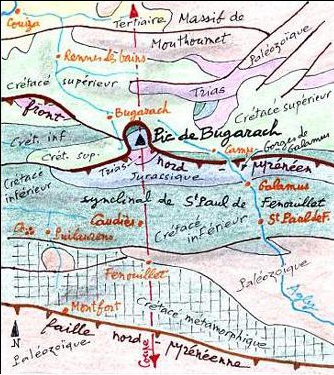 Couiza
Tertiaire
Massif de
Mouthoumet
Paléozoïque
Rennes les bains
Crétacé supérieur
Trias
Crétacé supérieur
front
Bugarach
Pic de Bugarach
Crét. inf
Crét. sup.
Camps
Gorges de
Galamus
Trias
nord
pyrénéen
Jurassique
Crétacé
inférieur
Galamus
synclinal de St Paul de
Fenouillet
Crétacé
inférieur
Caudiès
St Paul de F.
Puilaurens
Crétacé
inférieur
Fenouillet
Paléozoïque
Agly
Montfort
Crétacé métamorphique
faille
nord - pyrénéenne
N
Paléozoïque
Coupe